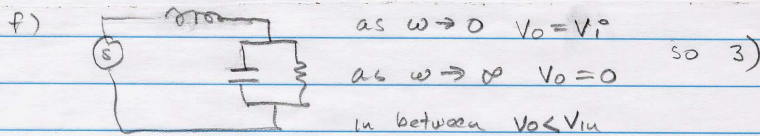 f)
S
as ω→0 Vo = Vi
as ω→∞ Vo = 0
so 3)
in between Vo < Vin